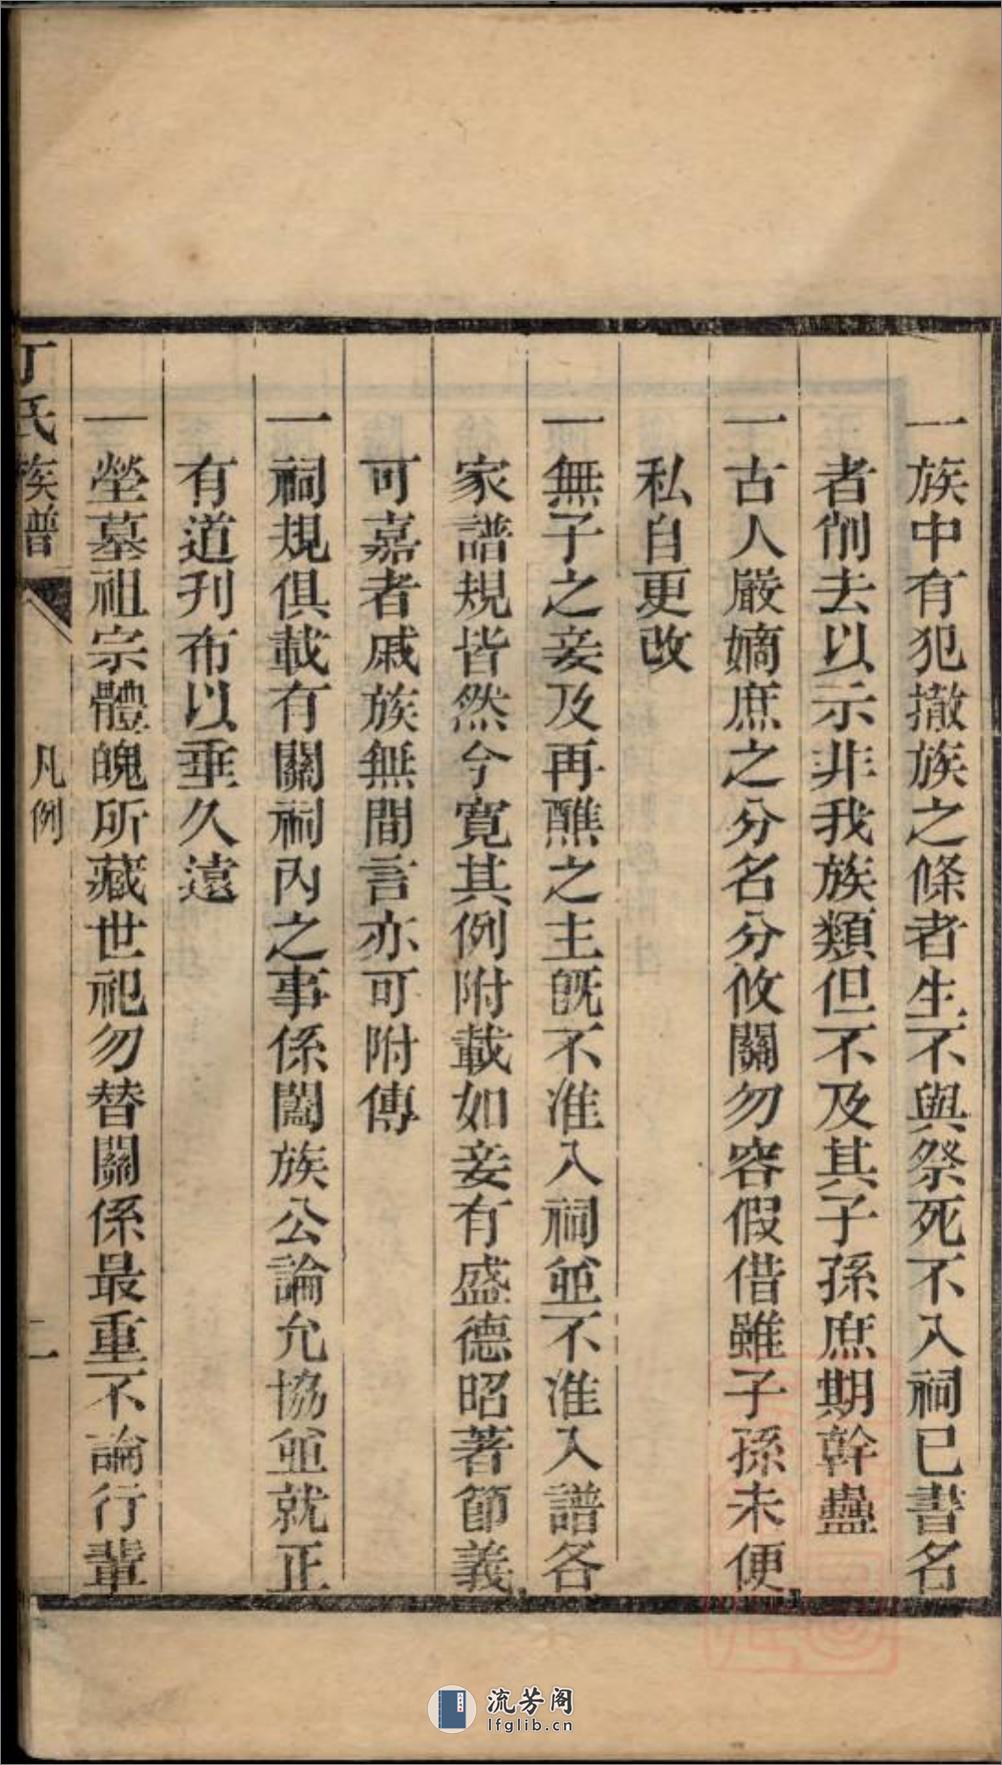 一族中有犯撤族之條者生不與祭死不入祠已書名
者削去以示非我族類但不及其子孫庶期幹蠱
一古人嚴嫡庶之分名分攸關勿容假借雖子孫未便
私自更改
一無子之妾及再醮之主旣不准入祠並不准入譜各
家譜規皆然今寬其例附載如妾有盛德昭著節義
可嘉者戚族無間言亦可附傳
一祠規俱載有關祠內之事係闔族公論允協並就正
有道刋布以垂久遠
一塋墓祖宗體魄所藏世祀勿替關係最重不論行輩
丁氏族譜 凡例 二
流芳阁
lfglib.cn